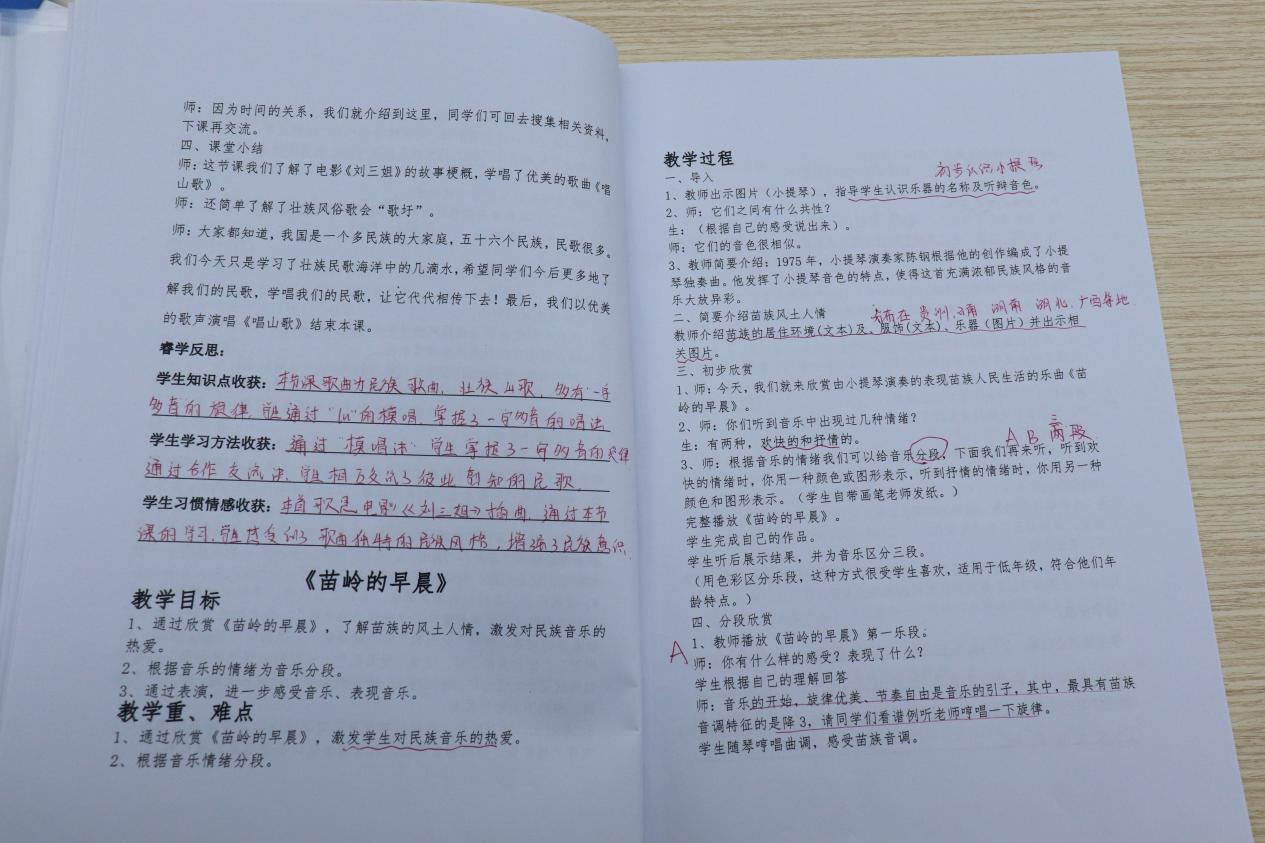 师：因为时间的关系，我们就介绍到这里，同学们可回去搜集相关资料，
下课再交流。
四、课堂小结
师：这节课我们了解了电影《刘三姐》的故事梗概，学唱了优美的歌曲《唱
山歌》。
师：还简单了解了壮族风俗歌会“歌圩”。
师：大家都知道，我国是一个多民族的大家庭，五十六个民族，民歌很多。
我们今天只是学习了壮族民歌海洋中的几滴水，希望同学们今后更多地了
解我们的民歌，学唱我们的民歌，让它代代相传下去！最后，我们以优美
的歌声演唱《唱山歌》结束本课。
睿学反思：
学生知识点收获：本课歌曲为民族歌曲，壮族山歌，多有一字
多音的旋律，学生通过“lu”的模唱，掌握了一字多音的唱法
学生学习方法收获：通过“模唱法”学生掌握了一字多音的旋律
通过合作交流法，学生相互交流了彼此熟知的民歌.
学生习惯情感收获：本首歌是电影《刘三姐》插曲，通过本节
课的学习，学生感受到了歌曲独特的民族风格，增强了民族意识.
《苗岭的早晨》
教学目标
1、通过欣赏《苗岭的早晨》，了解苗族的风土人情，激发对民族音乐的
热爱。
2、根据音乐的情绪为音乐分段。
3、通过表演，进一步感受音乐、表现音乐。
教学重、难点
1、通过欣赏《苗岭的早晨》，激发学生对民族音乐的热爱。
2、根据音乐情绪分段。
教学过程
初步认识小提琴
一、导入
1、教师出示图片（小提琴），指导学生认识乐器的名称及听辩音色。
2、师：它们之间有什么共性？
生：（根据自己的感受说出来）。
师：它们的音色很相似。
3、教师简要介绍：1975年，小提琴演奏家陈钢根据他的创作编成了小提
琴独奏曲。他发挥了小提琴音色的特点，使得这首充满浓郁民族风格的音
乐大放异彩。
二、简要介绍苗族风土人情
贵州 湖南 湖北、广西等地
教师介绍苗族的居住环境(文本)及、服饰(文本)、乐器（图片）并出示相
关图片。
三、初步欣赏
1、师：今天，我们就来欣赏由小提琴演奏的表现苗族人民生活的乐曲《苗
岭的早晨》。
2、师：你们听到音乐中出现过几种情绪？
生：有两种，欢快的和抒情的。
A B 两段
三
3、师：根据音乐的情绪我们可以给音乐分段，下面我们再来听，听到欢
快的情绪时，你用一种颜色或图形表示，听到抒情的情绪时，你用另一种
颜色和图形表示。（学生自带画笔老师发纸。）
完整播放《苗岭的早晨》。
学生完成自己的作品。
学生听后展示结果，并为音乐区分三段。
（用色彩区分乐段，这种方式很受学生喜欢，适用于低年级，符合他们年
龄特点。）
四、分段欣赏
A
1、教师播放《苗岭的早晨》第一乐段。
师：你有什么样的感受？表现了什么？
学生根据自己的理解回答
师：音乐的开始，旋律优美、节奏自由是音乐的引子，其中，最具有苗族
音调特征的是降3，请同学们看谱例听老师哼唱一下旋律。
学生随琴哼唱曲调，感受苗族音调。